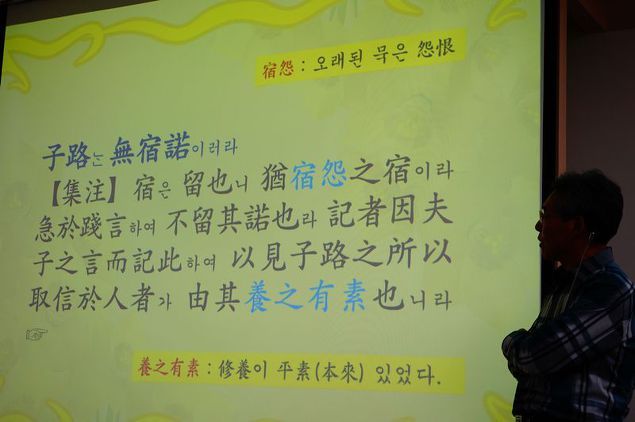 宿怨 : 오래된 묵은 怨恨
子路는 無宿諾이러라
【集注】 宿은 留也니 猶宿怨之宿이라
急於踐言하여 不留其諾也라 記者因夫
子之言而記此하여 以見子路之所以
取信於人者가 由其養之有素也니라
☞
養之有素 : 修養이 平素(本來) 있었다.